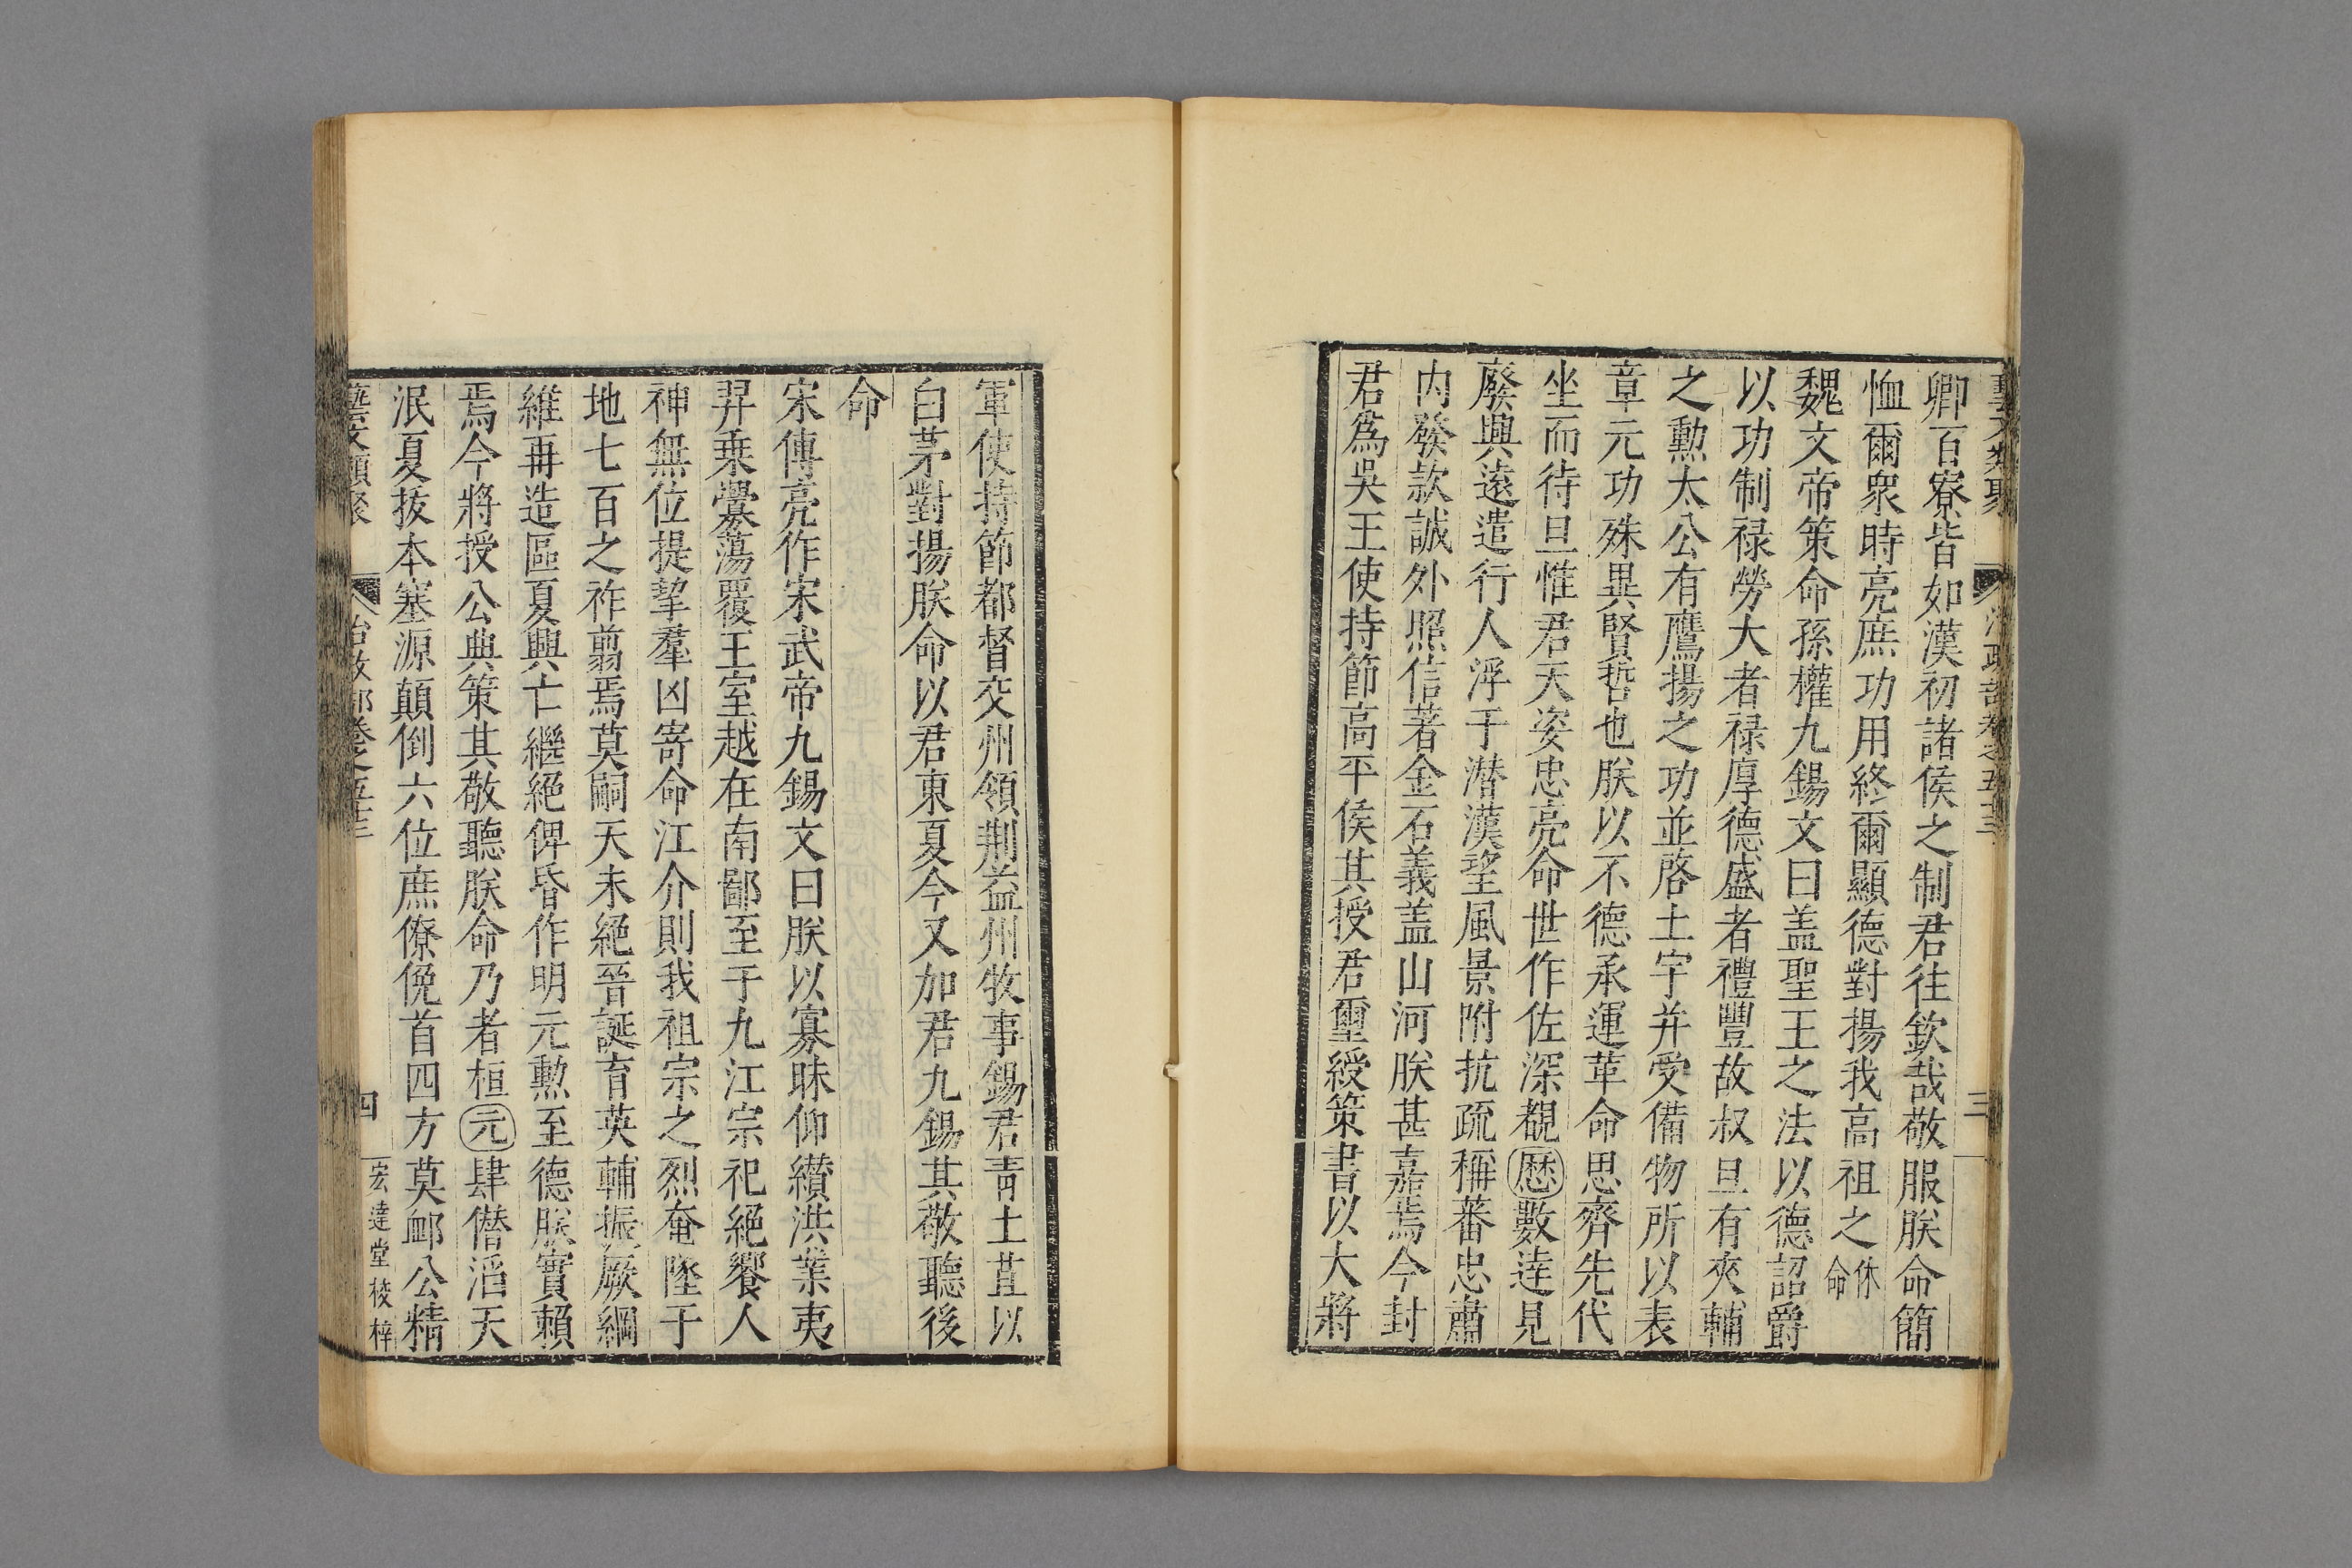 卿百寮皆如漢初諸侯之制君往欽哉敬服朕命簡
恤爾衆時亮庶功用終爾顯德對揚我高祖之休命
魏文帝策命孫權九錫文曰盖聖王之法以德詔爵
以功制禄勞大者禄厚德盛者禮豐故叔旦有夾輔
之勲太公有鷹揚之功並啓土宇并受備物所以表
章元功殊異賢哲也朕以不德承運革命思齊先代
坐而待旦惟君天姿忠亮命世作佐深覩歷數逹見
廢興遠遣行人浮于潜漢望風景附抗疏稱蕃忠肅
内發款誠外照信著金石義盖山河朕甚嘉焉今封
君爲吳王使持節高平侯其授君璽綬策書以大將
三
軍使持節都督交州領荆益州牧事錫君青土苴以
白茅對揚朕命以君東夏今又加君九錫其敬聽後
命
宋傅亮作宋武帝九錫文曰朕以寡昧仰纘洪業夷
羿乗舋蕩覆王室越在南鄙至于九江宗祀絕饗人
神無位提挈羣凶寄命江介則我祖宗之烈奄墜于
地七百之祚翦焉莫嗣天未絕晉誕育英輔振厥綱
維再造區夏興亡繼絕俾昏作明元勲至德朕實賴
焉今將授公典策其敬聽朕命乃者桓元肆僭滔天
泯夏拔本塞源顛倒六位庶僚俛首四方莫䘏公精
藝文類聚
治政部卷之五十三
四
宏達堂校梓